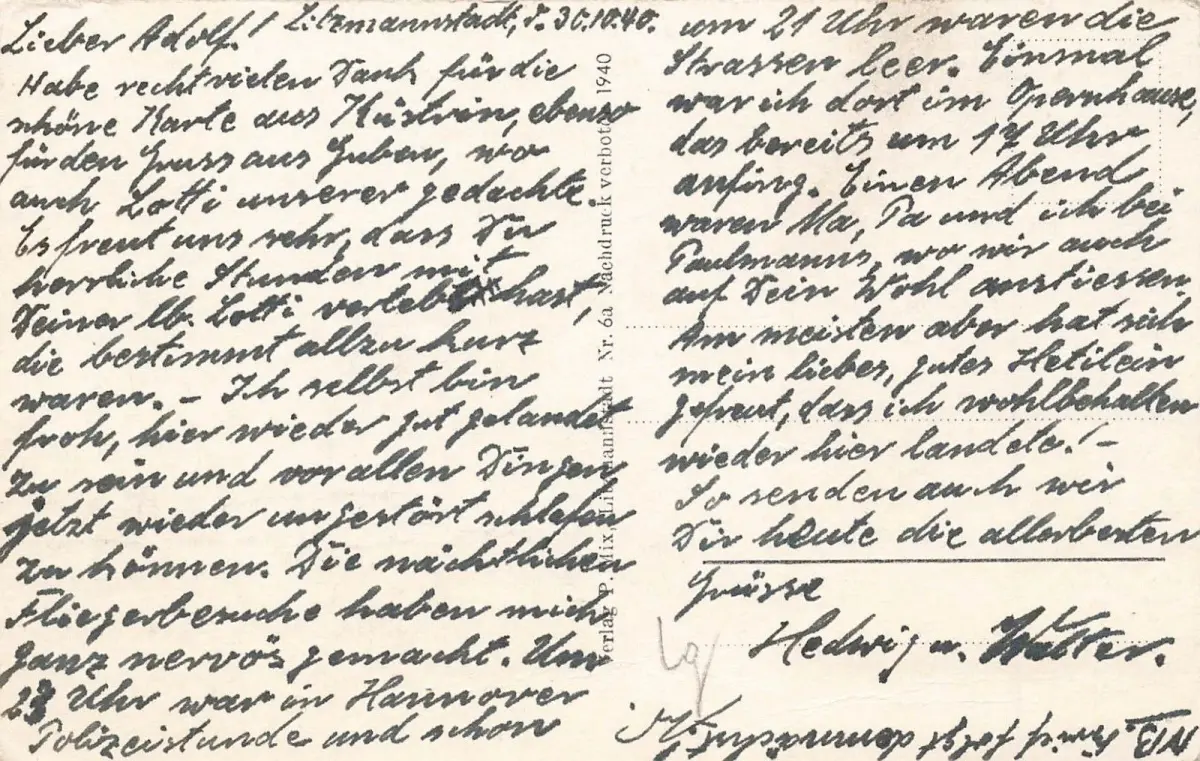 Litzmannstadt, d. 30.10.40.
Lieber Adolf!
Habe recht vielen Dank für die
schöne Karte aus Küstrin, ebenso
für den Gruss aus Guben, wo
auch Lotti unserer gedachte.
Es freut uns sehr, dass Du
herrliche Stunden mit
Deiner lb. Lotti verlebt hast,
die bestimmt allzu kurz
waren. – Ich selbst bin
froh, hier wieder gut gelandet
zu sein und vor allen Dingen
jetzt wieder ungestört schlafen
zu können. Die nächtlichen
Fliegerbesuche haben mich
ganz nervös gemacht. Um
23 Uhr war in Hannover
Polizeistunde und schon
um 21 Uhr waren die
Strassen leer. Einmal
war ich dort im Opernhause,
das bereits um 17 Uhr
anfing. Einen Abend
waren Ma, Pa und ich bei
Paulmanns, wo wir auch
auf Dein Wohl anstiessen.
Am meisten aber hat sich
mein liebes, gutes Hetilein
gefreut, dass ich wohlbehalten
wieder hier landete! –
So senden auch wir
Dir heute die allerbesten
Grüsse
Hedwig u. Walter.
NB. Brief folgt demnächst!
Verlag P. Mix, Litzmannstadt Nr. 6a Nachdruck verboten 1940